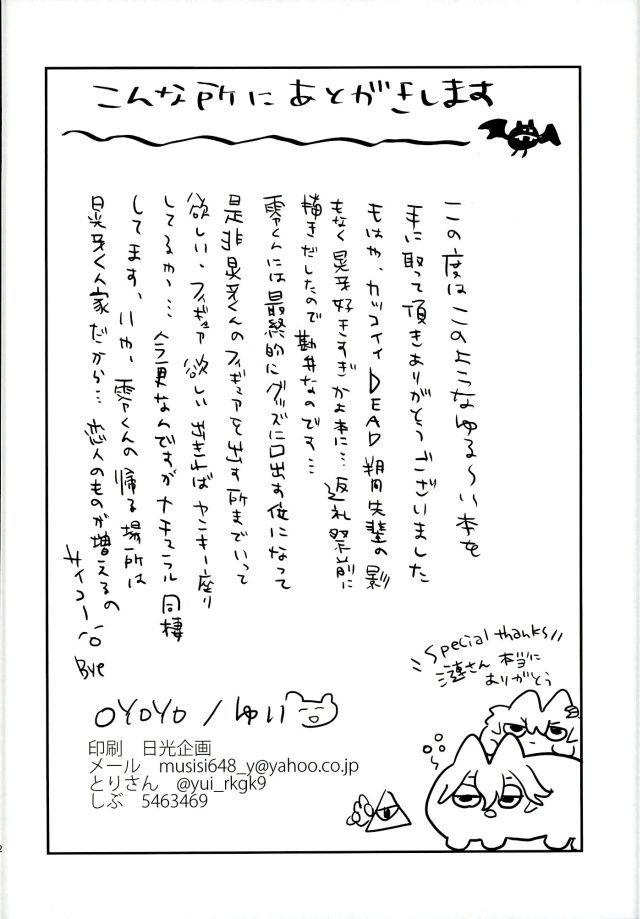 こんな所にあとがきします
この度はこのようなゆる～い本を
手に取って頂きありがとうございました
もはや、カッコイイDEAD朔間先輩の影
もなく晃牙好きすぎかよ本に…返礼祭前に
描きだしたので勘弁なのです…
零くんには最終的にグッズに口出す位になって
是非晃牙くんのフィギュアを出す所までいって
欲しい、フィギュア欲しい出きればヤンキー座り
してるやつ…今更なんですがナチュラル同棲
してます、いや、零くんの帰る場所は
晃牙くん家だから…恋人のものが増えるの
サイコー
Bye
Special thanks!!
さん 本当に
ありがとう
OYOYO / ゆい
印刷　日光企画
メール　musisi648_y@yahoo.co.jp
とりさん　@yui_rkgk9
しぶ　5463469
2